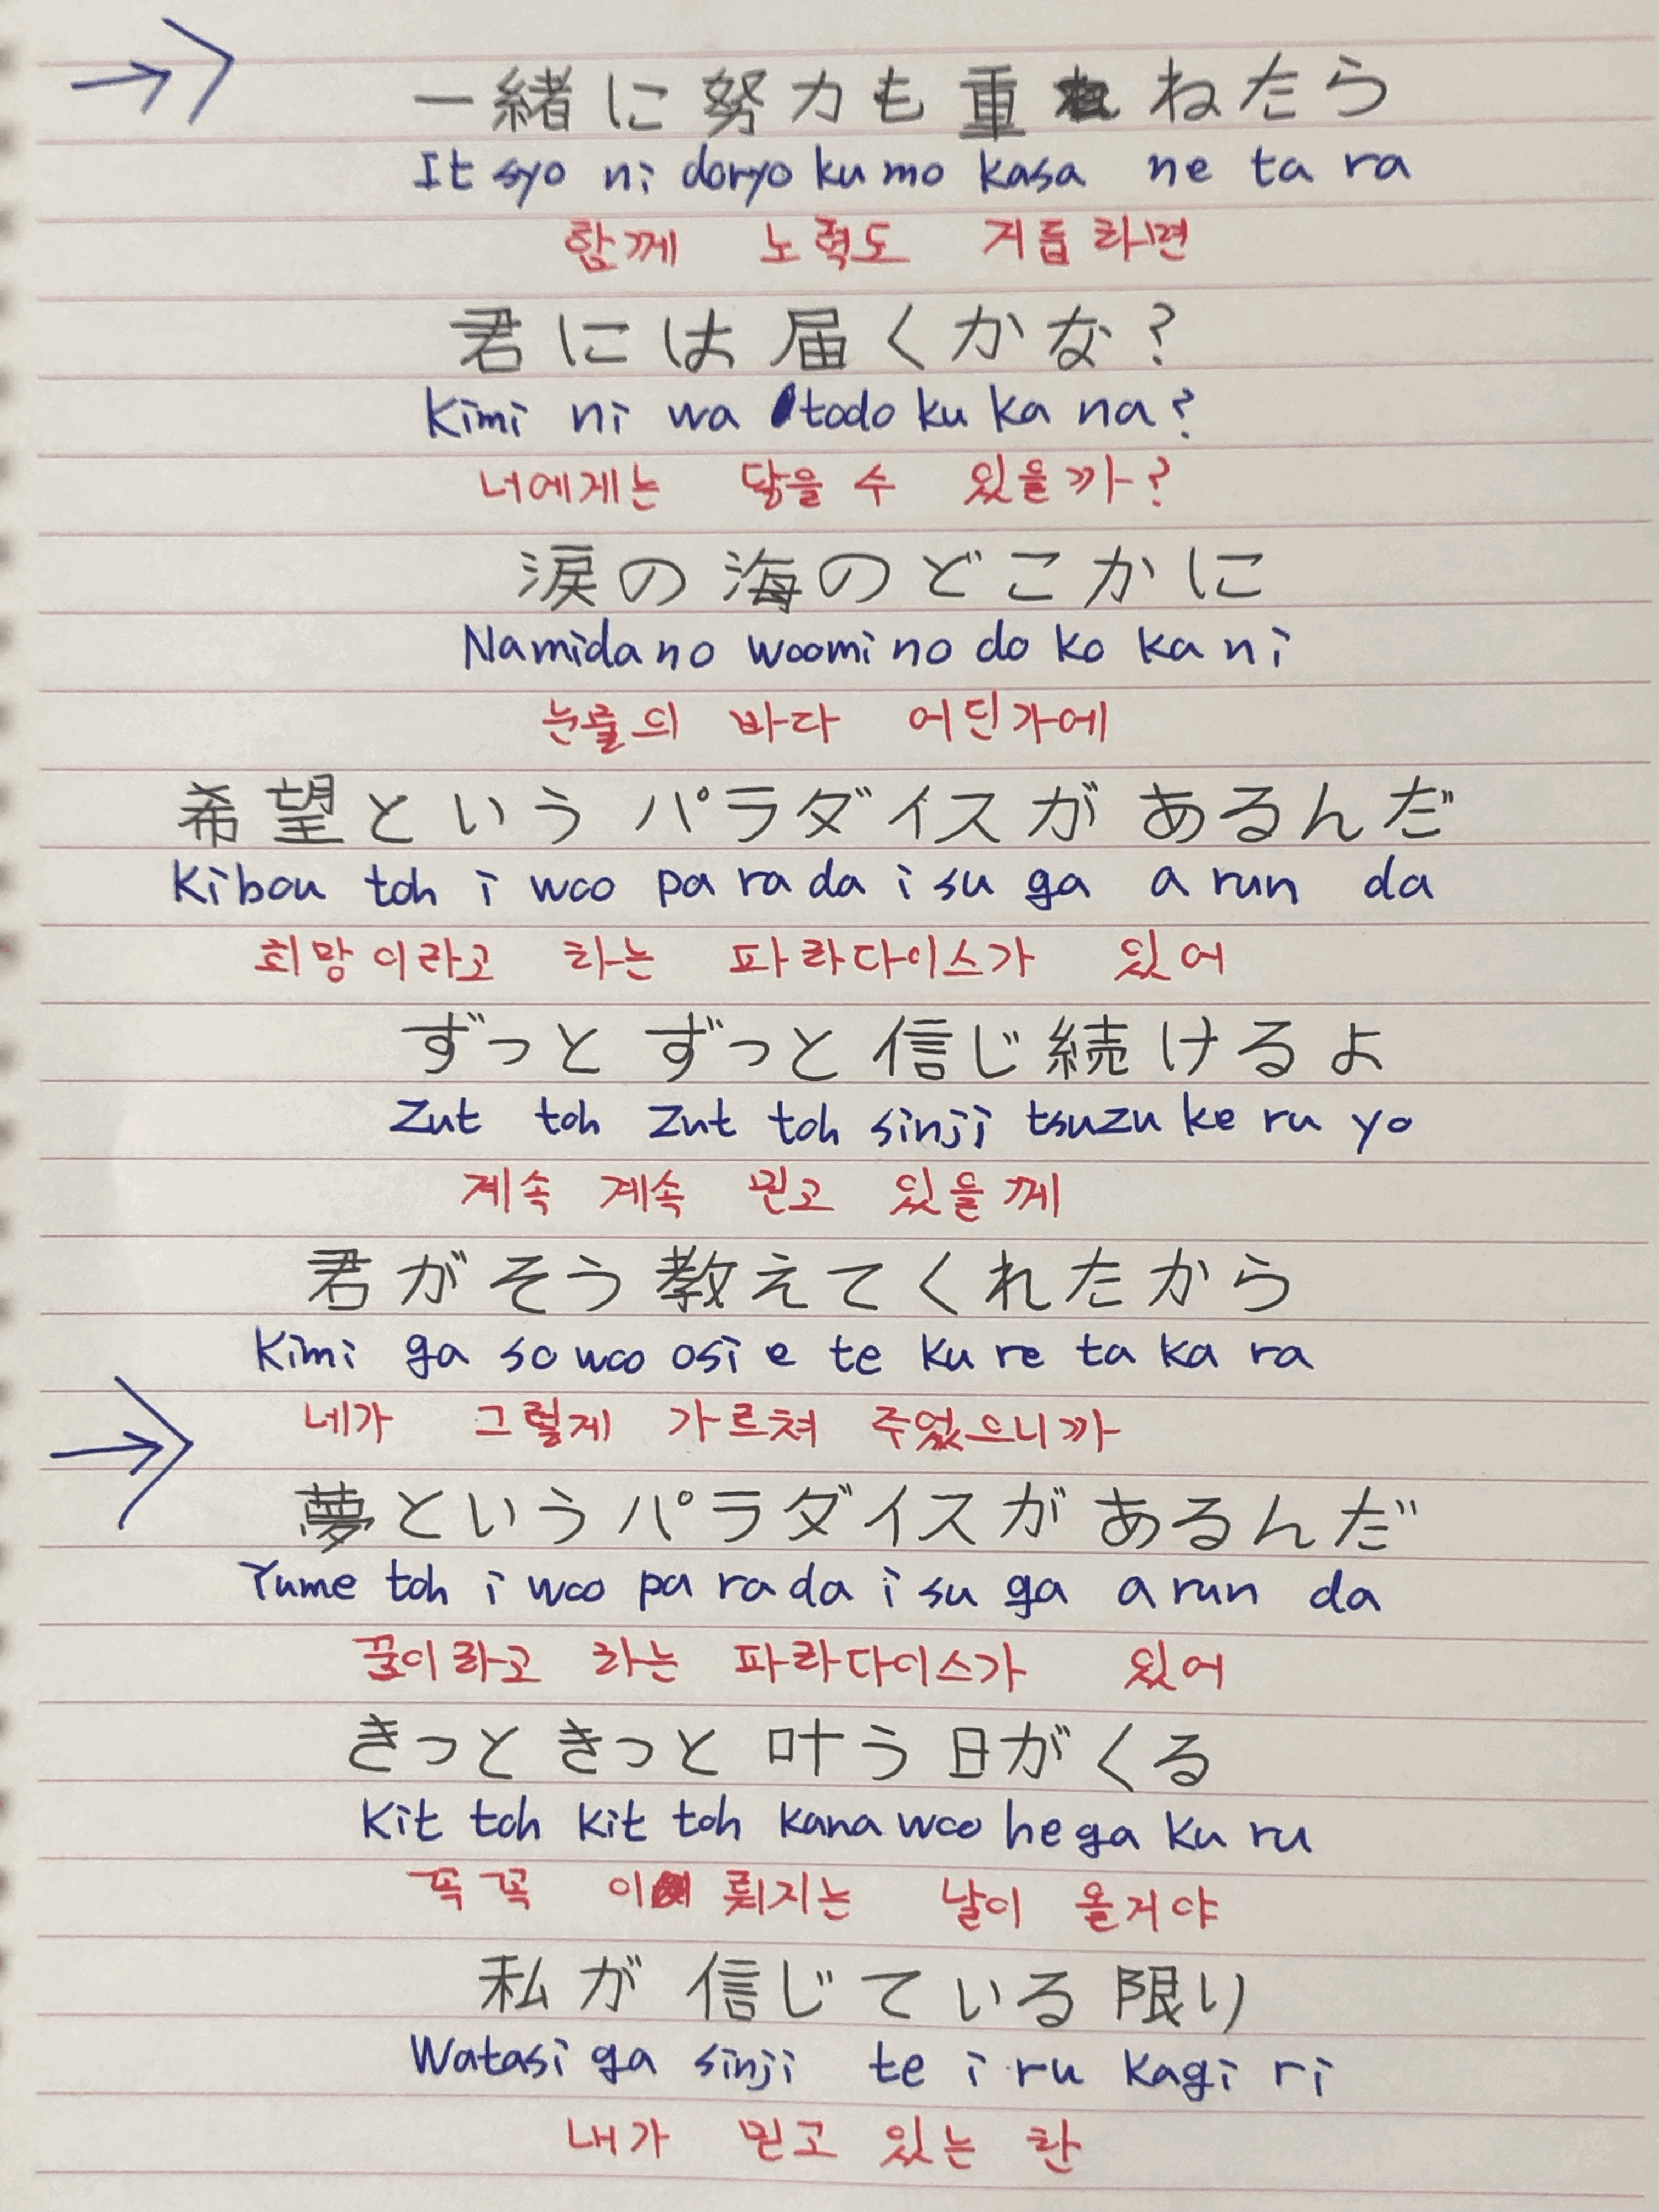 一緒に努力も重ねたら
It syo ni doryo ku mo kasa ne ta ra
함께 노력도 거듭하면
君には届くかな?
Kimi ni wa todo ku ka na?
너에게는 닿을 수 있을까?
涙の海のどこかに
Namida no woomi no do ko ka ni
눈물의 바다 어딘가에
希望というパラダイスがあるんだ
Kibou toh i woo pa ra da i su ga a run da
희망이라고 하는 파라다이스가 있어
ずっと ずっと 信じ続けるよ
Zut toh Zut toh sinji tsuzu ke ru yo
계속 계속 믿고 있을께
君がそう教えてくれたから
Kimi ga so woo osi e te ku re ta ka ra
네가 그렇게 가르쳐 주었으니까
夢というパラダイスがあるんだ
Yume toh i woo pa ra da i su ga a run da
꿈이라고 하는 파라다이스가 있어
きっと きっと 叶う日がくる
Kit toh kit toh kana woo he ga ku ru
꼭 꼭 이뤄지는 날이 올거야
私が信じている限り
Watasi ga sinji te i ru kagi ri
내가 믿고 있는 한